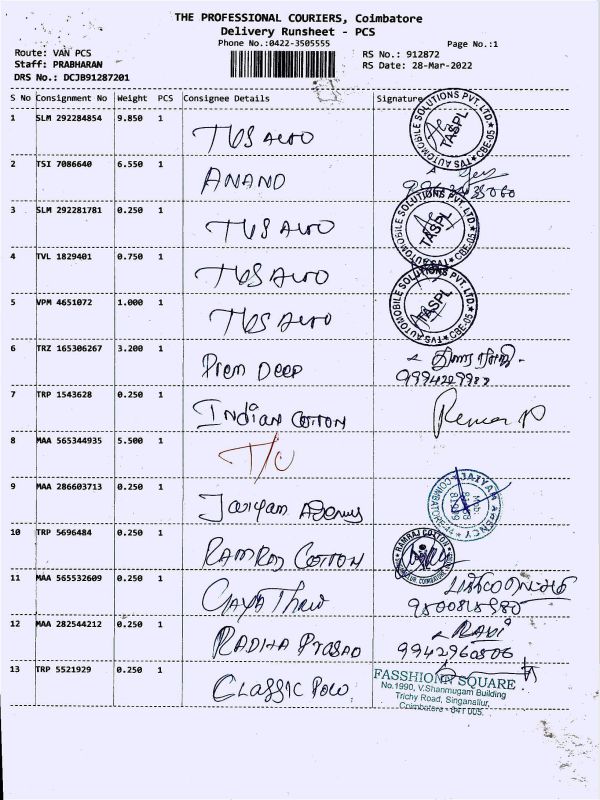 THE PROFESSIONAL COURIERS, Coimbatore
Delivery Runsheet - PCS
Phone No.:0422-3505555
Page No.:1
Route: VAN PCS
RS No.: 912872
Staff: PRABHARAN
RS Date: 28-Mar-2022
DRS No.: DCJB91287201
S No Consignment No Weight PCS Consignee Details Signature
1 SLM 292284854 9.850 1 TVS AUTO
TVS AUTOMOBILE SOLUTIONS PVT. LTD. TASPL CBE-05
2 TSI 7086640 6.550 1 ANAND
3 SLM 292281781 0.250 1 TVS AUTO
TVS AUTOMOBILE SOLUTIONS PVT. LTD. TASPL CBE-05
4 TVL 1829401 0.750 1 TVS AUTO
5 VPM 4651072 1.000 1 TVS AUTO
TVS AUTOMOBILE SOLUTIONS PVT. LTD. TASPL CBE-05
6 TRZ 165306267 3.200 1 Prem DEEP
7 TRP 1543628 0.250 1 Indian COTTON
8 MAA 565344935 5.500 1 T/U
9 MAA 286603713 0.250 1 Jaiyam Agency
JAIYAM AGENCY COIMBATORE
10 TRP 5696484 0.250 1 RAMRAJ COTTON
RAMRAJ COTTON COIMBATORE
11 MAA 565532609 0.250 1
12 MAA 282544212 0.250 1 RADHA PRASAD RAVI
9942960506
13 TRP 5521929 0.250 1 CLASSIC POLO
FASSHIONN SQUARE
No.1990, V.Shanmugam Building
Trichy Road, Singanallur,
Coimbatore - 641 005.